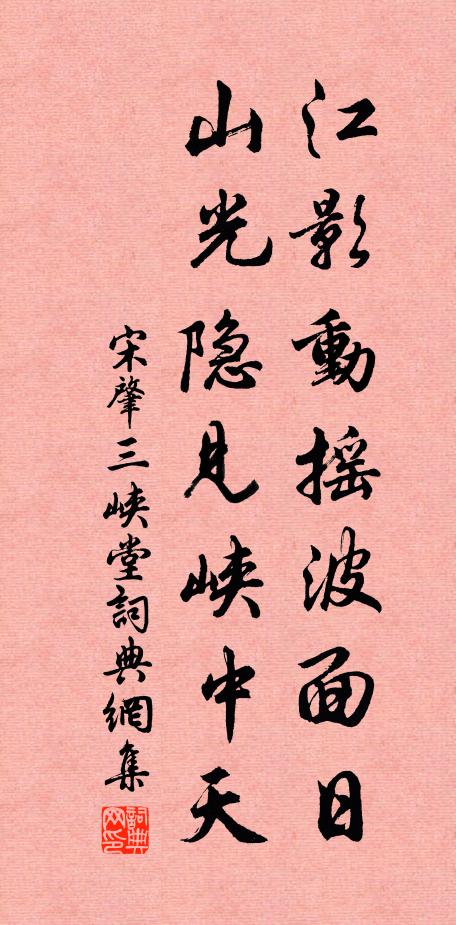 江影動摇波面日
山光隐見峡中天
宋肇三峡堂詞典網集
詞典网印